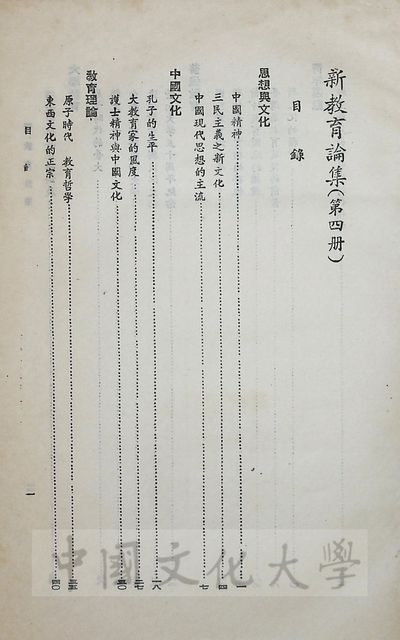 新教育論集（第四册）
目錄
思想與文化
中國精神……一
三民主義之新文化……四
中國現代思想的主流……七
中國文化
孔子的生平……一八
大教育家的風度……二七
護士精神與中國文化……三〇
教育理論
原子時代　教育哲學……三五
東西文化的正宗……四〇
目錄
一
中國文化大學